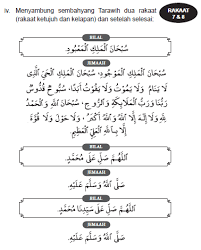 iv. Menyambung sembahyang Tarawih dua rakaat
(rakaat ketujuh dan kelapan) dan setelah selesai.
RAKAAT
7 & 8
BILAL
سُبْحَانَ الْمَلِكِ الْمَعْبُودِ.
JEMAAH
سُبْحَانَ الْمَلِكِ الْمَوْجُودِ، سُبْحَانَ الْمَلِكِ الْحَيِّ الَّذِي
لَا يَنَامُ وَلَا يَمُوتُ وَلَا يَفُوتُ أَبَدًا، سُبُّوحٌ قُدُّوسٌ
رَبُّنَا وَرَبُّ الْمَلَائِكَةِ وَالرُّوحِ، سُبْحَانَ اللهِ وَالْحَمْدُ
لِلَّهِ وَلَا إِلَهَ إِلَّا اللهُ وَاللهُ أَكْبَرُ، وَلَا حَوْلَ وَلَا قُوَّةَ
إِلَّا بِاللهِ الْعَلِيِّ الْعَظِيمِ
BILAL
اَللَّهُمَّ صَلِّ عَلَى مُحَمَّدٍ.
JEMAAH
صَلَّى اللهُ وَسَلَّمَ عَلَيْهِ.
BILAL
اَللَّهُمَّ صَلِّ عَلَى سَيِّدِنَا مُحَمَّدٍ.
JEMAAH
صَلَّى اللهُ وَسَلَّمَ عَلَيْهِ.